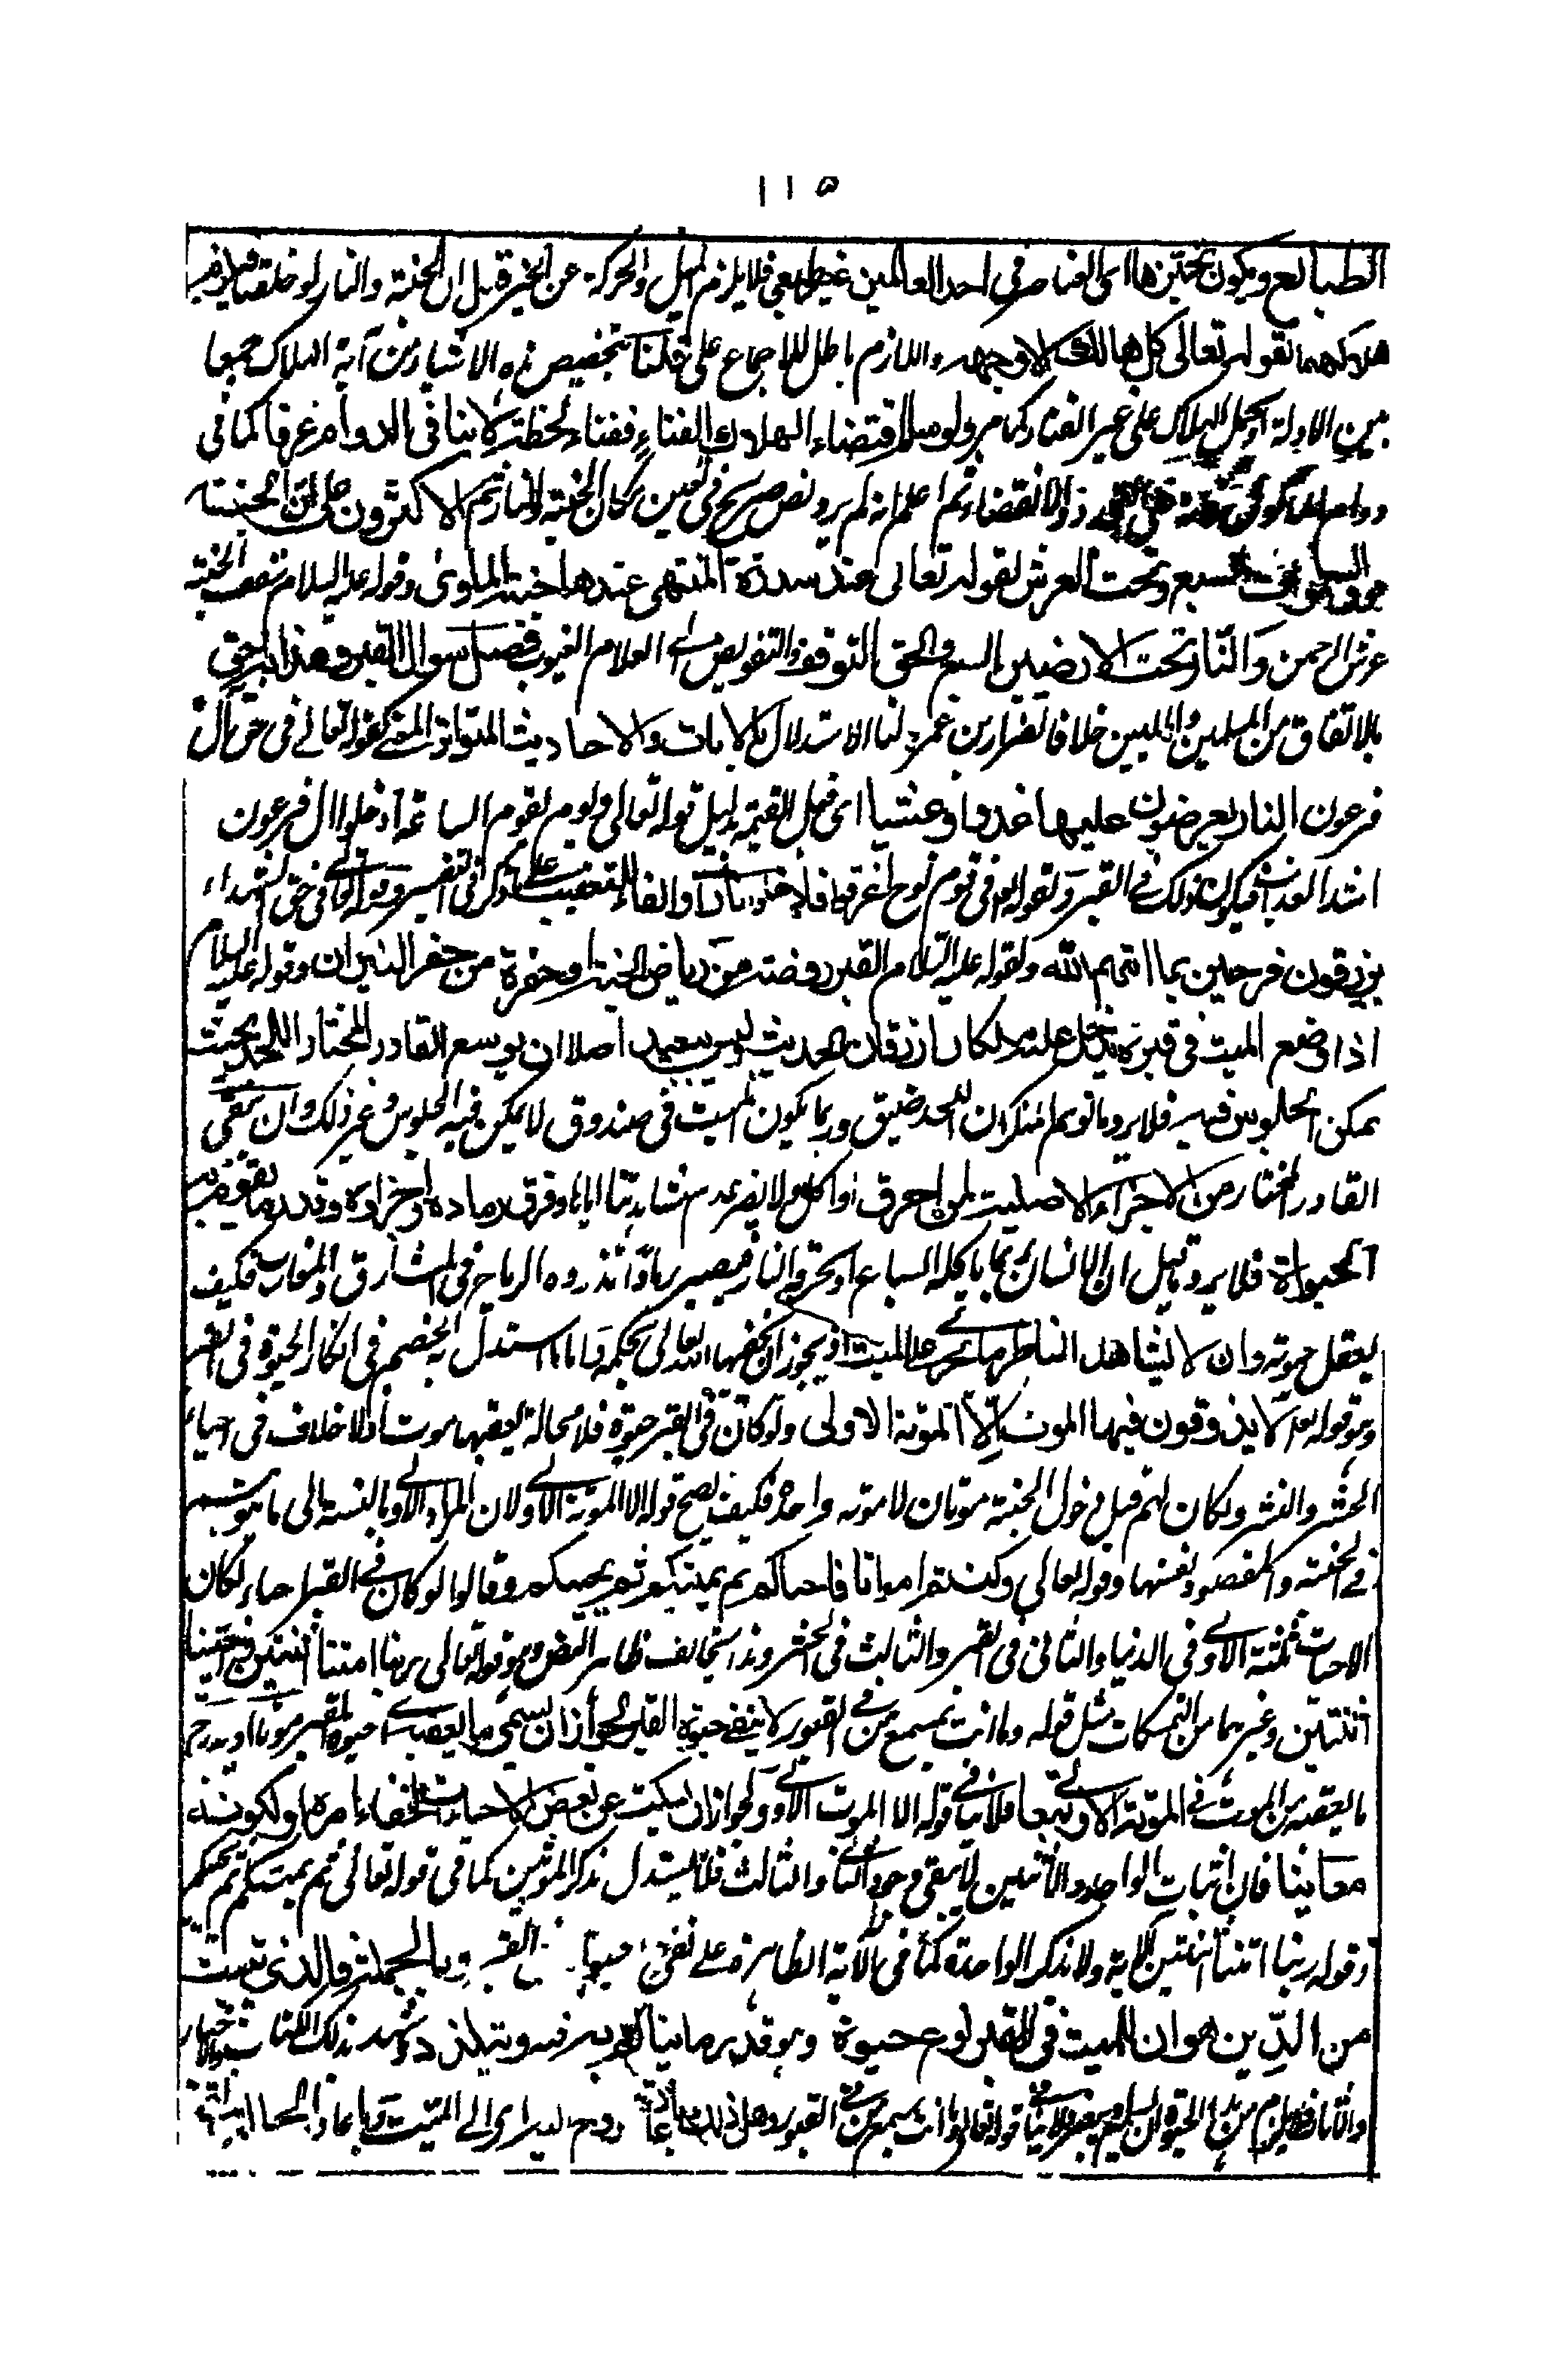 ١١٥
الطبائع ويكون تحيز هما اى العناصر فى احد العالمين غير طبعى فلا يلزم الميل والحركة عن الحيز قيل ان الجنة والنار لو خلقتا
هلاكهما لقوله تعالى كل هالك الا وجهه واللازم باطل للاجماع على قلنا بتخصيص هذه الاشياء من آية الهلاك جمعا
بين الادلة او يحمل الهلاك على غير الفناء كما مر ولو سلم اقتضاء الهلاك الفناء ففناء لحظة لا ينافى الدوام عرفا كما فى
دوام الانقضاء ثم اعلم انه لم يرد نص صريح فى تعيين مكان الجنة والنار ثم الاكثرون على ان الجنة
فوق السموات السبع وتحت العرش لقوله تعالى عند سدرة المنتهى عندها جنة الماوى وقوله عليه السلام سقف الجنة
عرش الرحمن والنار تحت الارضين السبع والحق التوقف والتفويض الى العلام الغيوب فصل سوال القبر وعذابه حق
بالاتفاق من المسلمين والمليين خلافا لضرار بن عمرو لنا الاستدلال بالايات والاحاديث المتواترة المعنى كقوله تعالى فى حق آل
فرعون النار يعرضون عليها غدوا وعشيا اى قبل القيمة بدليل قوله تعالى ويوم تقوم الساعة ادخلوا ال فرعون
اشد العذاب فيكون ذلك فى القبر ولقوله تعالى فى قوم نوح اغرقوا فادخلوا نارا والفاء للتعقيب على ما ذكر فى التفسير وقوله تعالى فى حق الشهداء
يرزقون فرحين بما اتهم الله ولقوله عليه السلام القبر روضة من رياض الجنة او حفرة من حفر النيران وقوله عليه السلام
اذا وضع الميت فى قبره يدخل عليه ملكان ازرقان الحديث وليس ببعيد اصلا ان يوسع القادر المختار اللحد بحيث
يمكن الجلوس فيه فلا يرد ما توهم المنكر ان اللحد ضيق وربما يكون الميت فى صندوق لا يمكن فيه الجلوس وغير ذلك وان يبقى
القادر المختار من الاجزاء الاصلية لمن احرق او اكل ولا يضر عدم مشاهدتنا اياها وفرق رماده او اجزاؤه وقدر ما تقوم به
الحيواة فلا يرد ما قيل ان الانسان ربما ياكله السباع او يحرقه النار فيصير رمادا تذروه الرياح فى المشارق والمغارب فكيف
يعقل حيوته وان لا يشاهد الناظر ما يجرى على الميت اذ يجوز ان يخفيها الله تعالى بحكمة واما ما استدل به الخصم فى انكار الحيوة فى القبر
وهو قوله تعالى لا يذوقون فيها الموت الا الموتة الاولى ولو كان فى القبر حيوة فلا محالة يعقبها موت اذ لا خلاف فى احياء
الحشر والنشر ولكان لهم قبل دخول الجنة موتتان لا موتة واحدة فكيف يصح قوله الا الموتة الاولى ولان المراد الاولى بالنسبة الى ما هو
فى الجنة والمقصود نفيها وقوله تعالى وكنتم امواتا فاحياكم ثم يميتكم ثم يحييكم وقالوا لو كان فى القبر احياء لكان
الاحياءات ثلثة الاولى فى الدنيا والثانى فى القبر والثالث فى الحشر وهذا يخالف ظاهر النص وهو قوله تعالى ربنا امتنا اثنتين واحييتنا
اثنتين وغيرهما من التمسكات مثل قوله وما انت بمسمع من فى القبور لا ينفى حيوة القبر لجواز ان يسمى ما يعقب حيوة القبر موتا او يدرج
ما يعقبه من الموت فى الموتة الاولى تبعا فلا ينافى قوله الا الموت الاولى ولجواز ان يسكت عن بعض الاحياءات لخفاء امره او لكونه
معاينا فان اثبات الواحد والاثنين لا ينفى وجود الثانى والثالث فلا يستدل بذكر الموتين كما فى قوله تعالى ثم يميتكم ثم يحييكم
وقوله ربنا امتنا اثنتين الاية ولا بذكر الواحدة كما فى الآية الظاهرة على نفى حيوة القبر وبالجملة فالذى ثبت
من الدين هو ان للميت فى القبر نوع حيوة وهو قدر ما يتالم به ويتلذذ ويشهد بذلك الكتاب والاخبار
والاثار فلا يلزم من هذا الحيوة ان يسلم ولا ينافى قوله تعالى وما انت بمسمع من فى القبور وهل ذلك باعادة روح